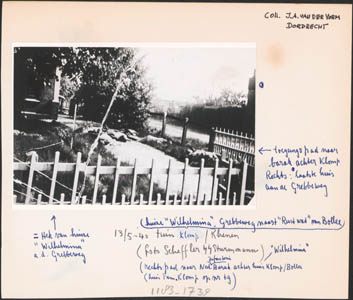 Coll. J.A. van der Vorm
Dordrecht
← toegangspad naar
barak achter Klomp
Rechts: laatste huis
aan de Grebbeweg
↑
= Hek van huize
"Wilhelmina"
a.d. Grebbeweg
(huize "Wilhelmina", Grebbeweg, naast "Rust wat" van Botter
13/5-'40 tuin Klomp / Rhenen
(foto Scheffler "Wilhelmina"
(rechts pad naar Ned. barak achter huis Klomp/Botter
(huis Fam. Klomp op
1183-1738